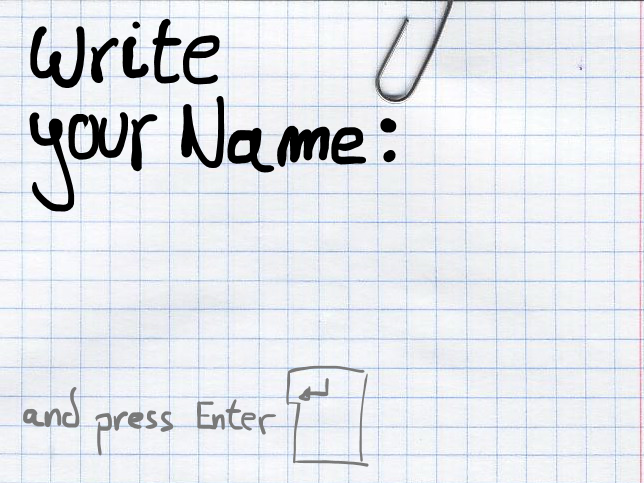 Write
your Name:
and press Enter